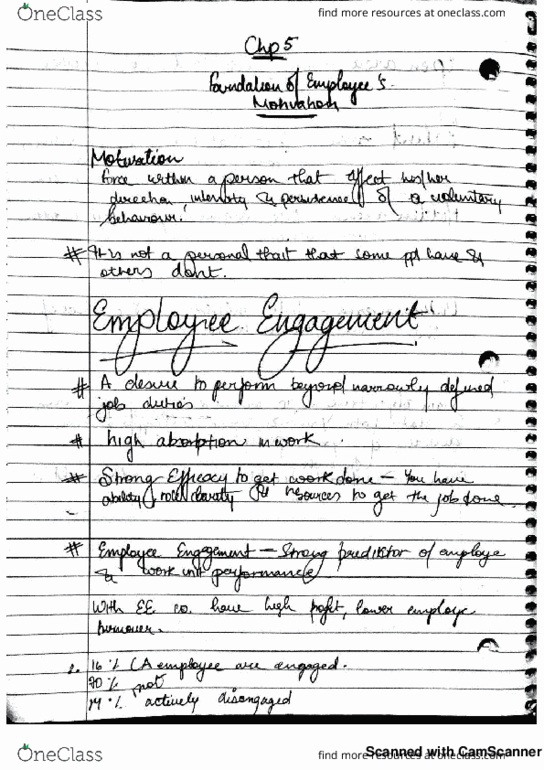 OneClass
find more resources at oneclass.com
Chp 5
Foundation of Employee's
Motivation
Motivation
force within a person that affect his/her
direction, intensity & persistence of a voluntary
behaviour.
# It is not a personal thait that some ppl have &
others dont.
Employee Engagement
# A desire to perform beyond narrowly defined
job duties
# high absorption in work.
# Strong Efficacy to get work done – You have
ability, role clarity & resources to get the job done
# Employee Engagement – Strong predictor of employe
& work unit performance
With EE co. have high profit, lower employe
turnover.
16 % CA employee are engaged.
70 % not
14 % actively disengaged
OneClass
find more resources at oneclass.com
Scanned with CamScanner